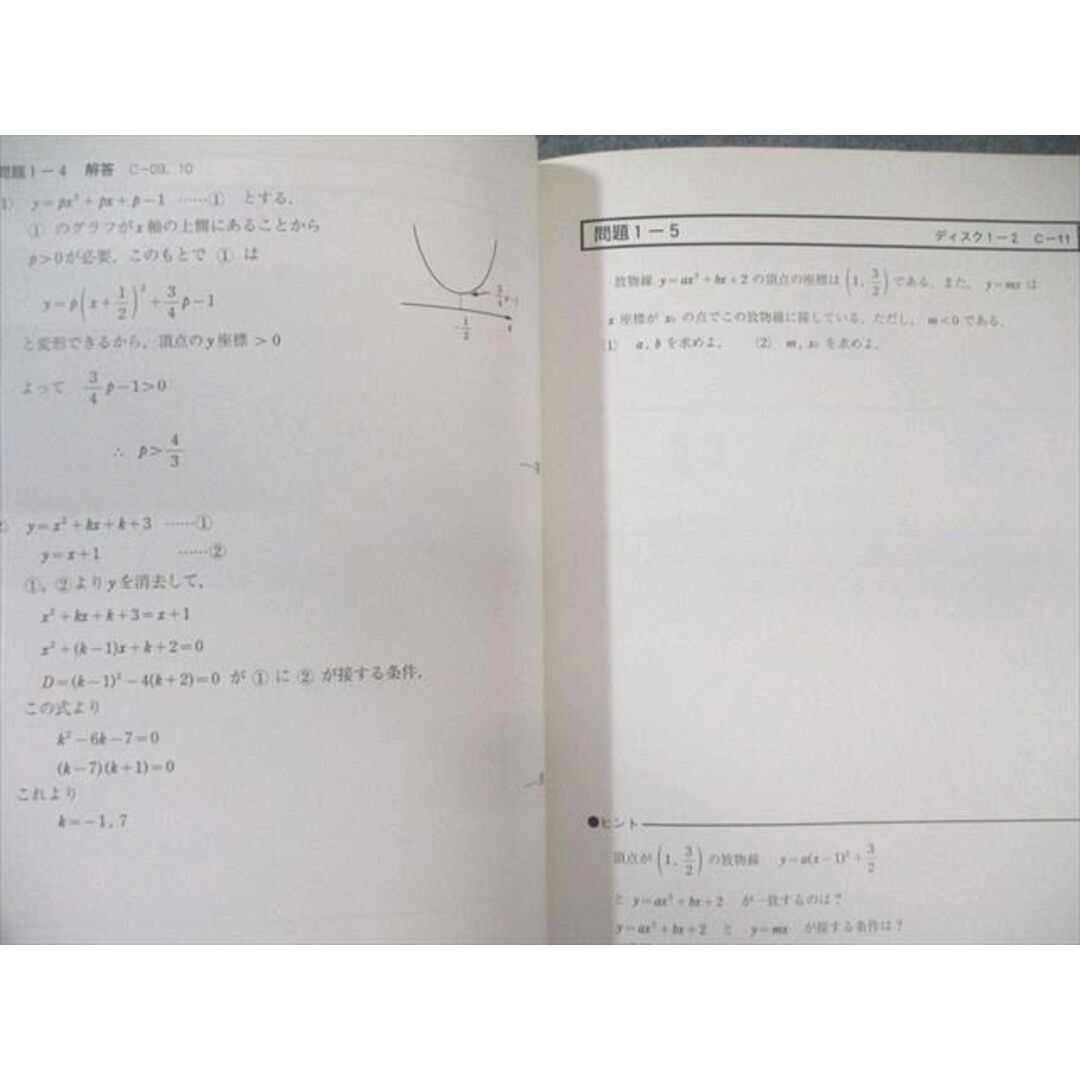 問題1－4 解答 C－09, 10
y=px²+px+p−1 ……① とする．
① のグラフがx軸の上側にあることから
p>0が必要．このもとで ① は
y=p(x+1/2)²+3/4p−1
3/4p−1
−1/2
x
と変形できるから，頂点のy座標>0
よって 3/4p−1>0
∴ p>4/3
y=x²+kx+k+3 ……①
y=x+1 ……②
①，②よりyを消去して，
x²+kx+k+3=x+1
x²+(k−1)x+k+2=0
D=(k−1)²−4(k+2)=0 が ① に ② が接する条件．
この式より
k²−6k−7=0
(k−7)(k+1)=0
これより
k=−1, 7
問題1－5 ディスク1－2 C－11
放物線 y=ax²+bx+2 の頂点の座標は (1, 3/2) である．また，y=mx は
x 座標が x₀ の点でこの放物線に接している．ただし，m<0 である．
(1) a, b を求めよ． (2) m, x₀ を求めよ．
●ヒント
頂点が (1, 3/2) の放物線 y=a(x−1)²+3/2
と y=ax²+bx+2 が一致するのは？
y=ax²+bx+2 と y=mx が接する条件は？